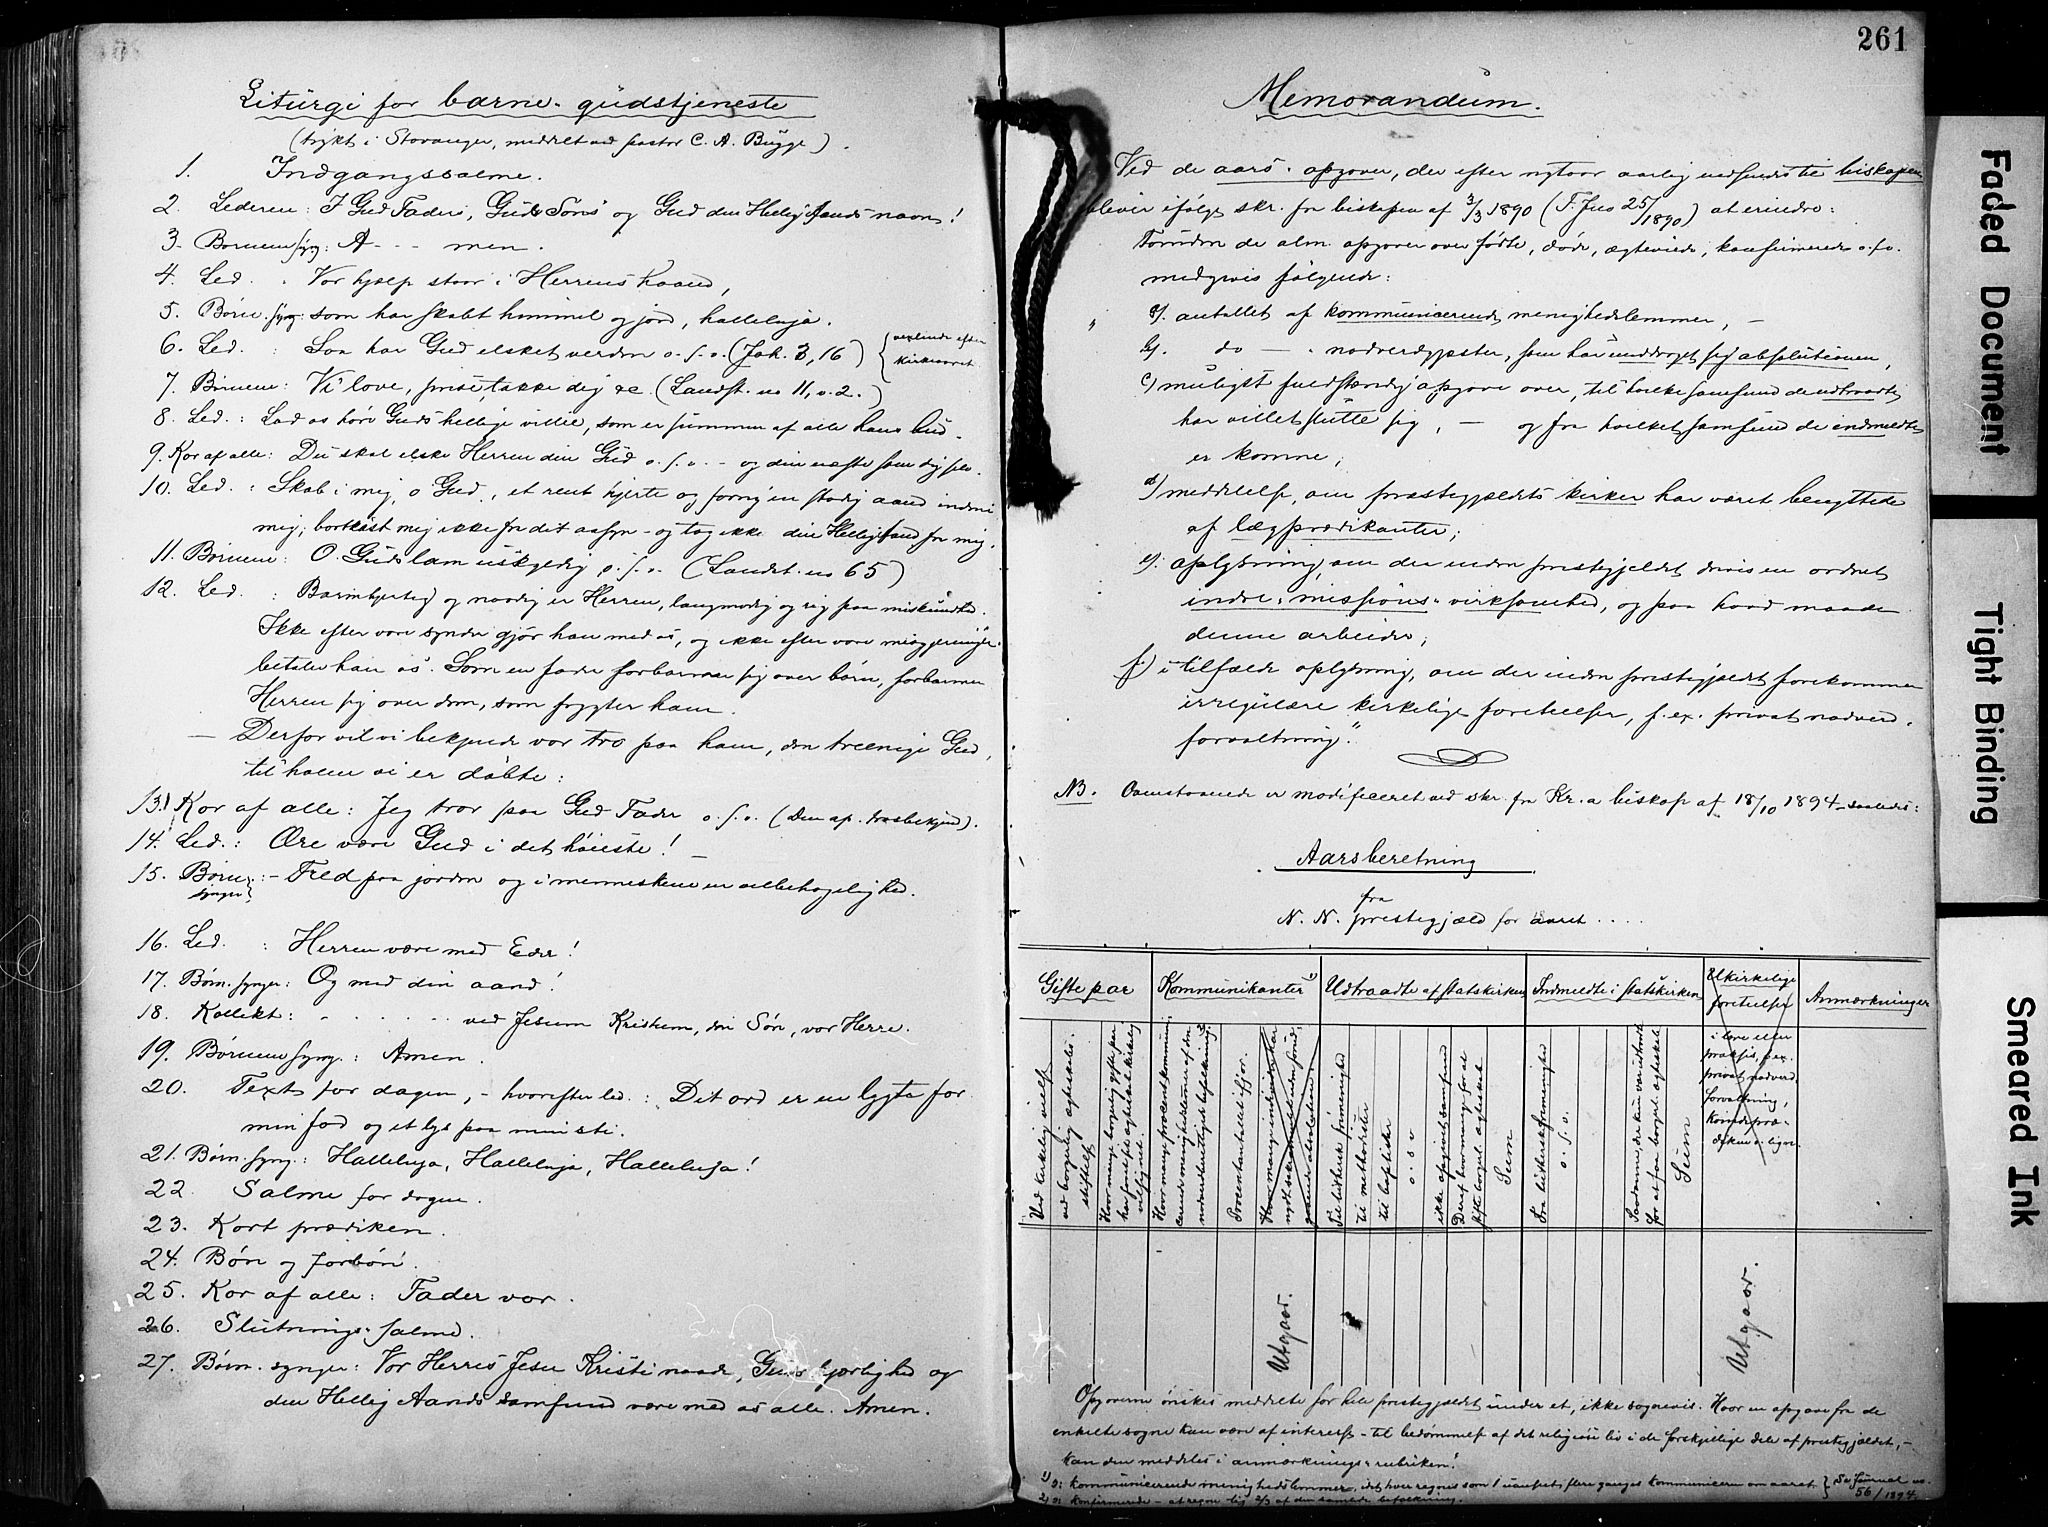 Liturgi for barne-gudstjeneste
(trykt i Stavanger, meddelt ved pastor C. A. Bugge).
1. Indgangssalme.
2. Lederen: I Gud Faders, Guds Søns og Gud den Hellig Aands navn!
3. Børnene syng: A - - - men.
4. Led. : Vor hjælp staar i Herrens haand,
5. Børn. syng: som har skabt himmel og jord, halleluja.
6. Led. : Saa har Gud elsket verden o.s.v. (Joh. 3, 16) { vexlende efter
kirkeaaret
7. Børnene: Vi love, prise, takke dig &c (Landst. no 11, v. 2.)
8. Led.: Lad os høre Guds hellige villie, som er summen af alle hans bud.
9. Kor af alle: Du skal elske Herren din Gud o.s.v. - og din næste som dig selv.
10. Led. : Skab i mig, o Gud, et rent hjerte og forny en stadig aand inden i
mig; bortkast mig ikke fra dit aasyn - og tag ikke din Hellig Aand fra mig.
11. Børnene: O Guds lam uskyldig o.s.v. (Landst. no 65)
12. Led. : Barmhjertig og naadig er Herren, langmodig og rig paa miskundhed.
Ikke efter vore synder gjør han med os, og ikke efter vore misgjerninger
betaler han os. Som en fader forbarmer sig over børn, forbarmer
Herren sig over dem, som frygter ham.
- Derfor vil vi bekjende vor tro paa ham, den treenige Gud,
til hvem vi er døbte:
13. Kor af alle: Jeg tror paa Gud Fader o.s.v. (Den ap. trosbekjend).
14. Led.: Ære være Gud i det høieste! -
15. Børn. synger}: - Fred paa jorden og i menneskene en velbehagelighed.
16. Led. : Herren være med Eder!
17. Børn. synger: Og med din aand!
18. Kollekt: - - - - - ved Jesum Kristum, din Søn, vor Herre.
19. Børnene syng.: Amen.
20. Text for dagen, - hvorefter led.: Dit ord er en lygte for
min fod og et lys paa min sti.
21. Børn. syng.: Halleluja, Halleluja, Halleluja!
22. Salme for dagen.
23. Kort prædiken.
24. Bøn og forbøn.
25. Kor af alle: Fader vor.
26. Slutnings-salme.
27. Børn. synger: Vor Herres Jesu Kristi naade, Guds kjærlighed og
den Hellig Aands samfund være med os alle. Amen.
261
Memorandum.
Ved de aars-opgaver, der efter nytaar aarlig indsendes til biskopen
blevir ifølge skr. fra biskopen af 3/3 1890 (F. Jno 25/1890) at erindre:
Foruden de alm. opgaver over fødte, døde, ægteviede, konfirmerede o.s.v.
medgives følgende:
" a). antallet af kommunicerende menighedslemmer, -
b). do - - nadverdgjester, som har unddraget sig absolutionen,
c) muligst fuldstændig opgave over, til hvilke samfund de udtraadte
har villet slutte sig, - og fra hvilket samfund de indmeldte
er komne;
d) meddelelse, om prestegjeldets kirker har været benyttede
af lægprædikanter;
e). oplysning, om der inden prestegjeldet drives en ordnet
indre-missions-virksomhed, og paa hvad maade
denne arbeider;
f.) i tilfælde oplysning, om der inden prestegjeldet forekommer
irregulære kirkelige foreteelser, f. ex. privat nadverd-
forvaltning".
NB. Ovenstaaende er modificeret ved skr. fra Kr.a biskop af 18/10 1894 saaledes:
Aarsberetning
fra
N. N. prestegjæld for aaret ....
Gifte par
Kommunikanter 1)
Udtraadte af statskirken
Indmeldte i statskirken
Ukirkelige
foreteelser
Anmærkninger
Ved kirkelig vielse
ved borgerlig ægteskabs-
stiftelse
Hvor mange borgerlig gifte par
har forut for ægteskabet kirkelig
velsignet.
Hvor mange procent kommuni-
cerende menighedslemmer af den
nadverberettigede befolkning. 2)
Procentantallet ifjor.
Til luthersk frimenighed
til methodister
til baptister
o.s.v
ikke opgivet samfund
Deraf hvormange for at
stifte borgerl. ægteskab
Sum
Fra luthersk frimenighed
o.s.v.
Saadanne, der kun var udtraadt
for at faa borgerl. ægteskab
Sum
i lære eller
praksis, f. ex.
privat nadverd-
forvaltning,
kvindepræ-
diken o. lign.
Utgaar.
Utgaar.
Opgaverne ønskes meddelte for hele prestegjældet under et, ikke sognevis. Hvor en opgave fra de
enkelte sogne kan være af interesse - til bedømmelse af det religiøse liv i de forskjellige dele af prestegjældet, -
kan den meddeles i anmærknings-rubriken!
1) o: kommunicerende menighedslemmer, idet hver regnes som 1 uanset, flere ganges kommunicere om aaret. } Se Journal no.
2) o: konfirmerede - at regne lig 2/3 af den samlede befolkning. 56/1894.
Faded Document
Tight Binding
Smeared Ink